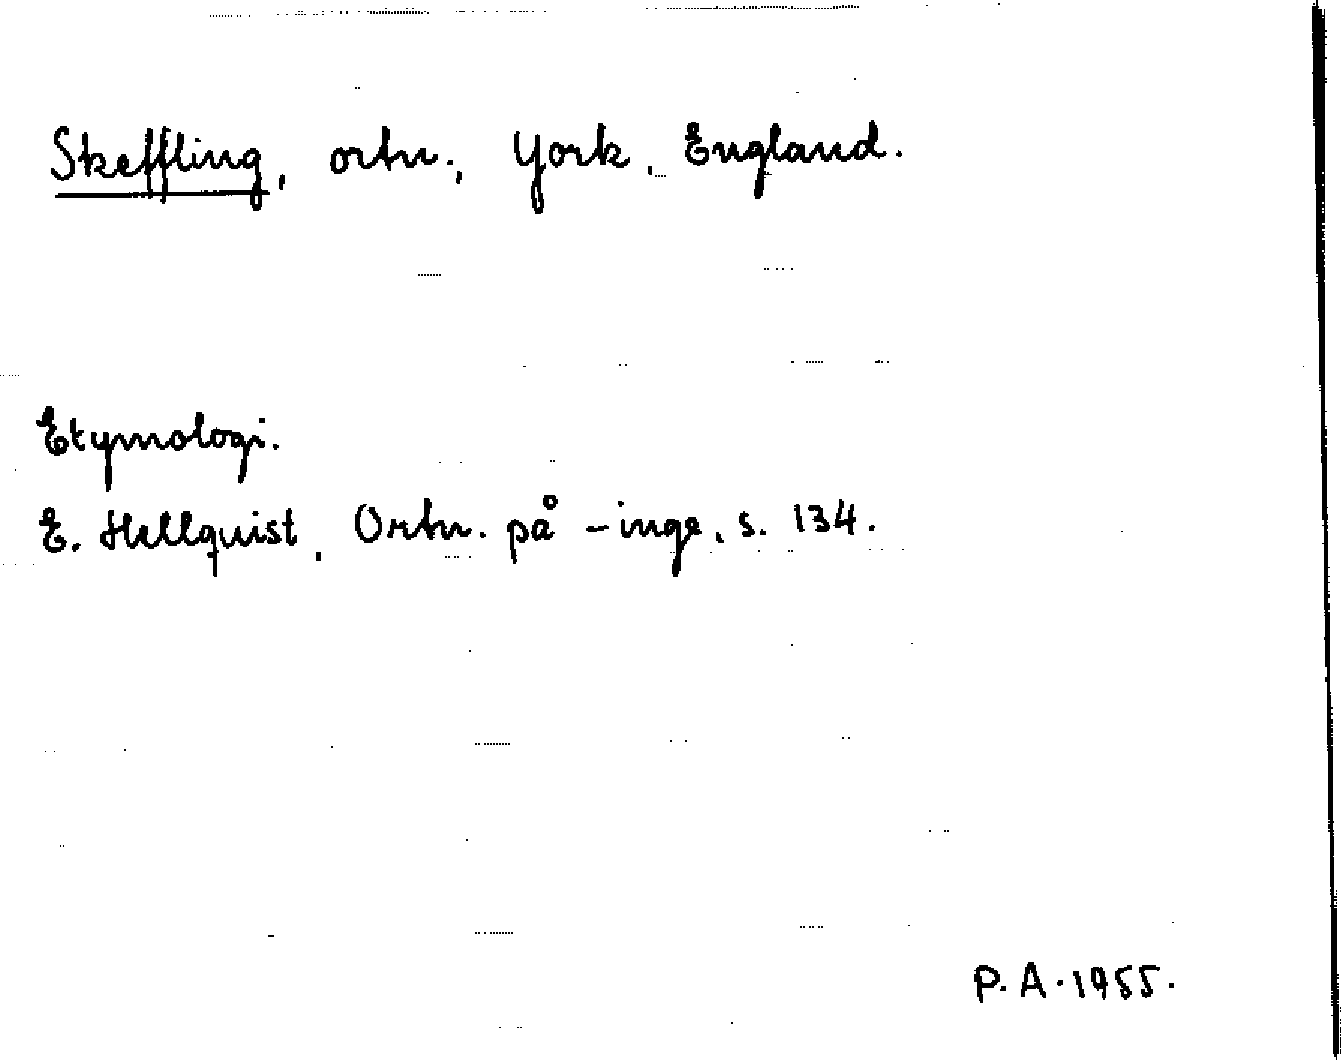 Skeffling, ortn., York, England.
Etymologi.
E. Hellquist, Ortn. på -inge, s. 134.
P. A. 1955.